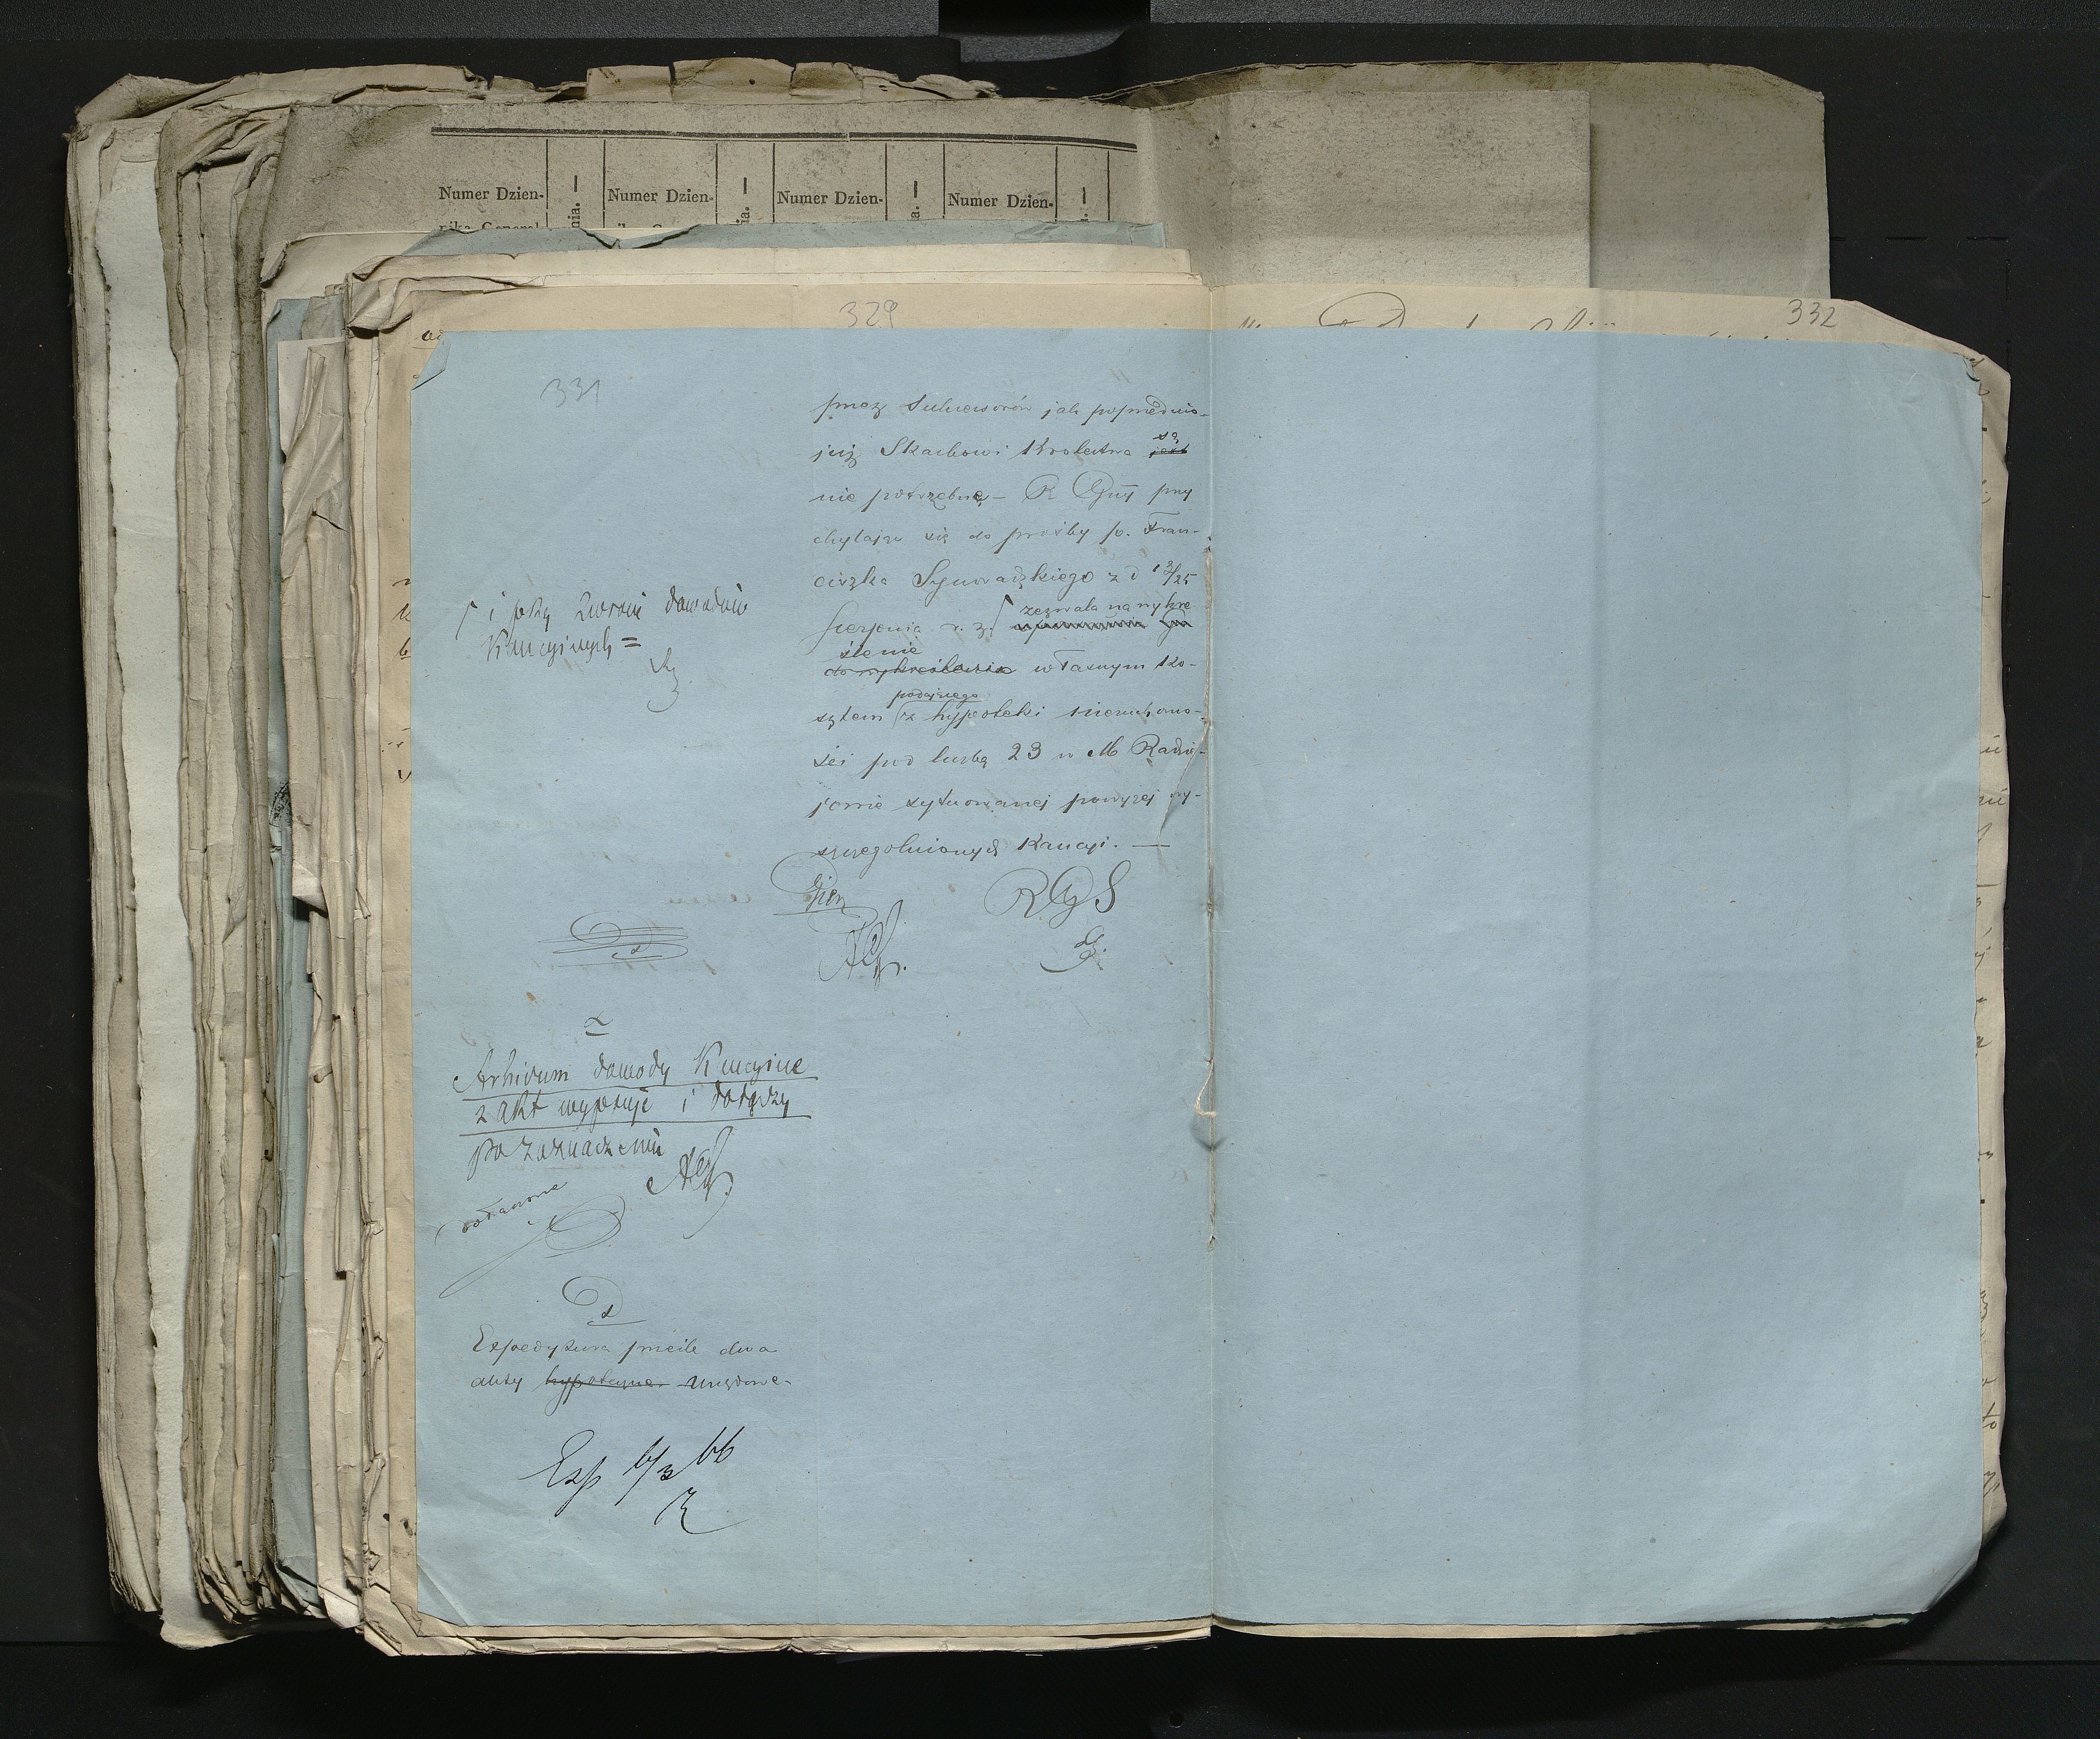 Numer Dzien- Numer Dzien- Numer Dzien- Numer Dzien-
329
332
331
przez Sukcessorów jak poprzednio
już Skarbowi Królestwa są jest
nie potrzebne – R Gny przy
chylając się do prośby p. Fran-
ciszka 13/25
Sierpnia r. z. zezwala na wykre
ślenie
do wykreślenia własnym ko-
podającego
sztem z hypoteki nieruchomo-
ści pod liczbą 23 w M Radzie-
jowie sytuowanej powyżej wy-
szczególnionych Kaucyi. —
i przy zwrocie dowodów
Kaucyjnych =
RGS
Arhivum dowody Kaucyine
z akt wypruje i dołączy
po zaznaczeniu
dołączone
Expedytura prześle dwa
akty hypoteczne urzędowe
Exp 6/3 66